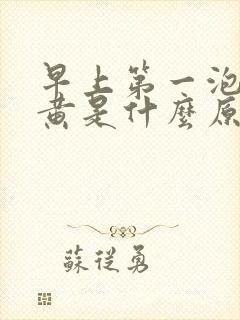 早上第一泡
黄是什麼原
蘇從勇